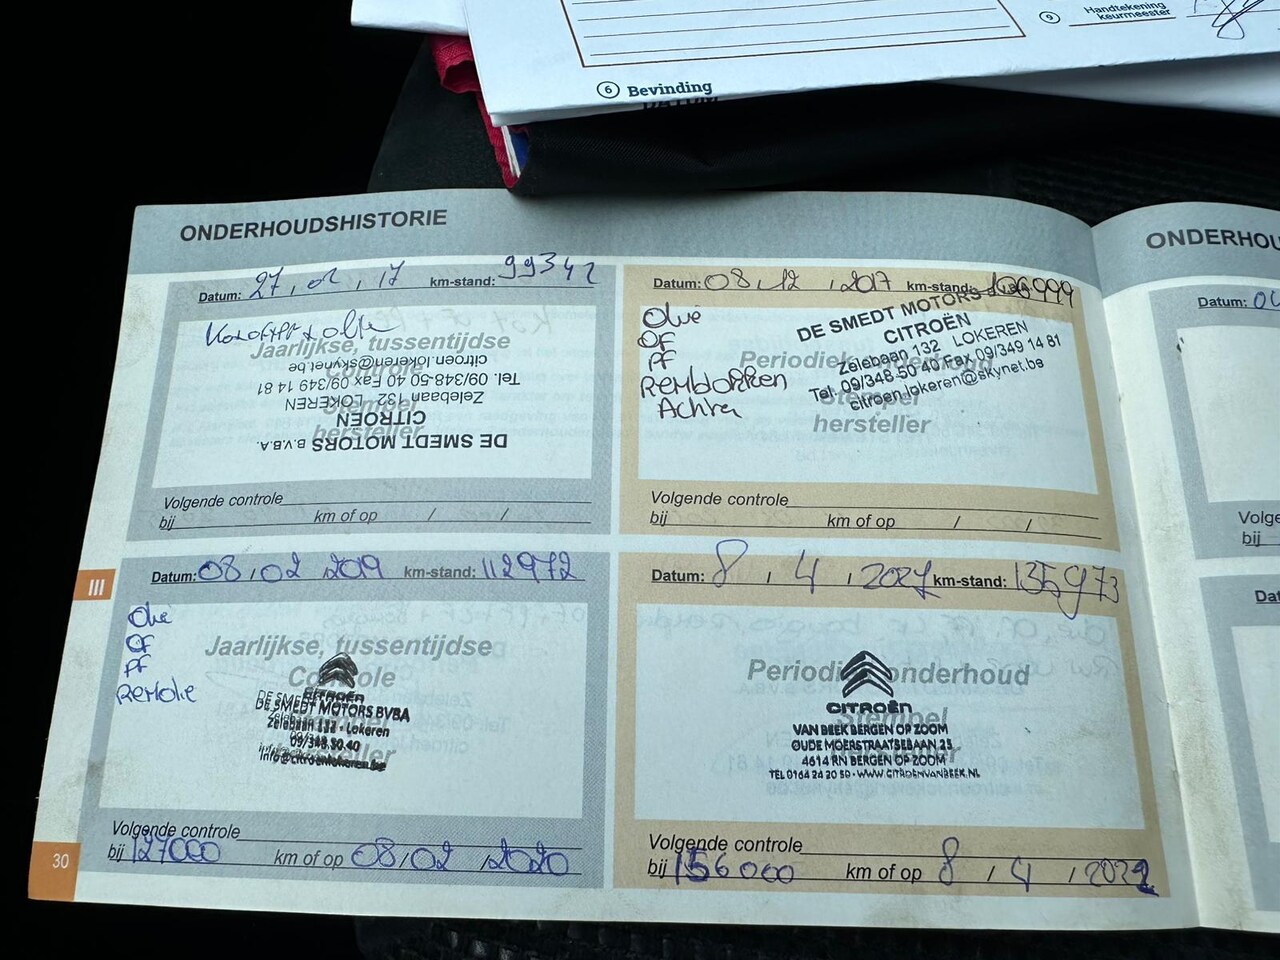 9 Handtekening
keurmeester
6 Bevinding
ONDERHOUDSHISTORIE
Datum: 27, 02, 17 km-stand: 99342
Jaarlijkse, tussentijdse
Controle
Stempel
hersteller
DE SMEDT MOTORS B.V.B.A.
CITROËN
Zelebaan 132 LOKEREN
Tel. 09/348 50 40 Fax 09/349 14 81
citroen.lokeren@skynet.be
Volgende controle
bij km of op / /
Datum: 08, 12, 2017 km-stand: 106999
Olie
OF
PF
Remblokken
Achter
Periodiek onderhoud
Stempel
hersteller
DE SMEDT MOTORS B.V.B.A.
CITROËN
Zelebaan 132 LOKEREN
Tel. 09/348 50 40 Fax 09/349 14 81
citroen.lokeren@skynet.be
Volgende controle
bij km of op / /
III
Datum: 08, 02 2019 km-stand: 112972
Olie
OF
PF
Remolie
Jaarlijkse, tussentijdse
Controle
Stempel
hersteller
CITROËN
DE SMEDT MOTORS BVBA
Zelebaan 132 - Lokeren
09/348.50.40
info@citroenlokeren.be
Volgende controle
bij 127000 km of op 08/02/2020
Datum: 8, 4, 2021 km-stand: 135973
Periodiek onderhoud
Stempel
hersteller
CITROËN
VAN BEEK BERGEN OP ZOOM
OUDE MOERSTRAATSEBAAN 25
4614 RN BERGEN OP ZOOM
TEL 0164 24 20 50 - WWW.CITROENVANBEEK.NL
Volgende controle
bij 156000 km of op 8 / 4 / 2022
30
ONDERHOU
Datum:
Volge
bij
Dat